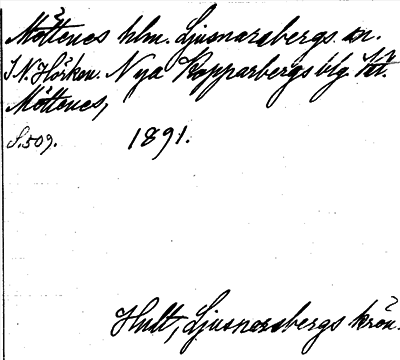 Möttenes hlm. Ljusnarsbergs sn.
I N. Hörken. Nya Kopparbergs blg. Kt.
Möttenes,
S. 509. 1891.
Hult, Ljusnarsbergs krön.